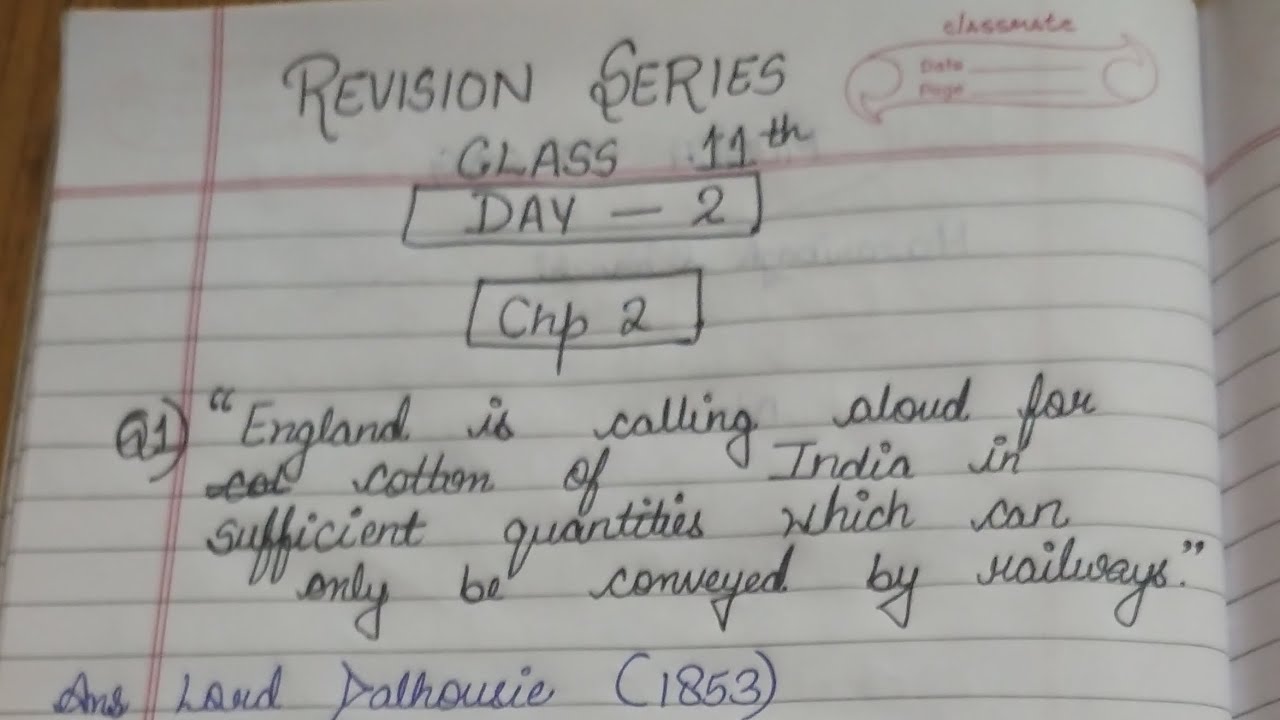 classmate
Date
Page
REVISION SERIES
CLASS 11th
DAY — 2
Chp 2
Q1) "England is calling aloud for
cotton of India in
sufficient quantities which can
only be conveyed by railways."
Ans Lord Dalhousie (1853)